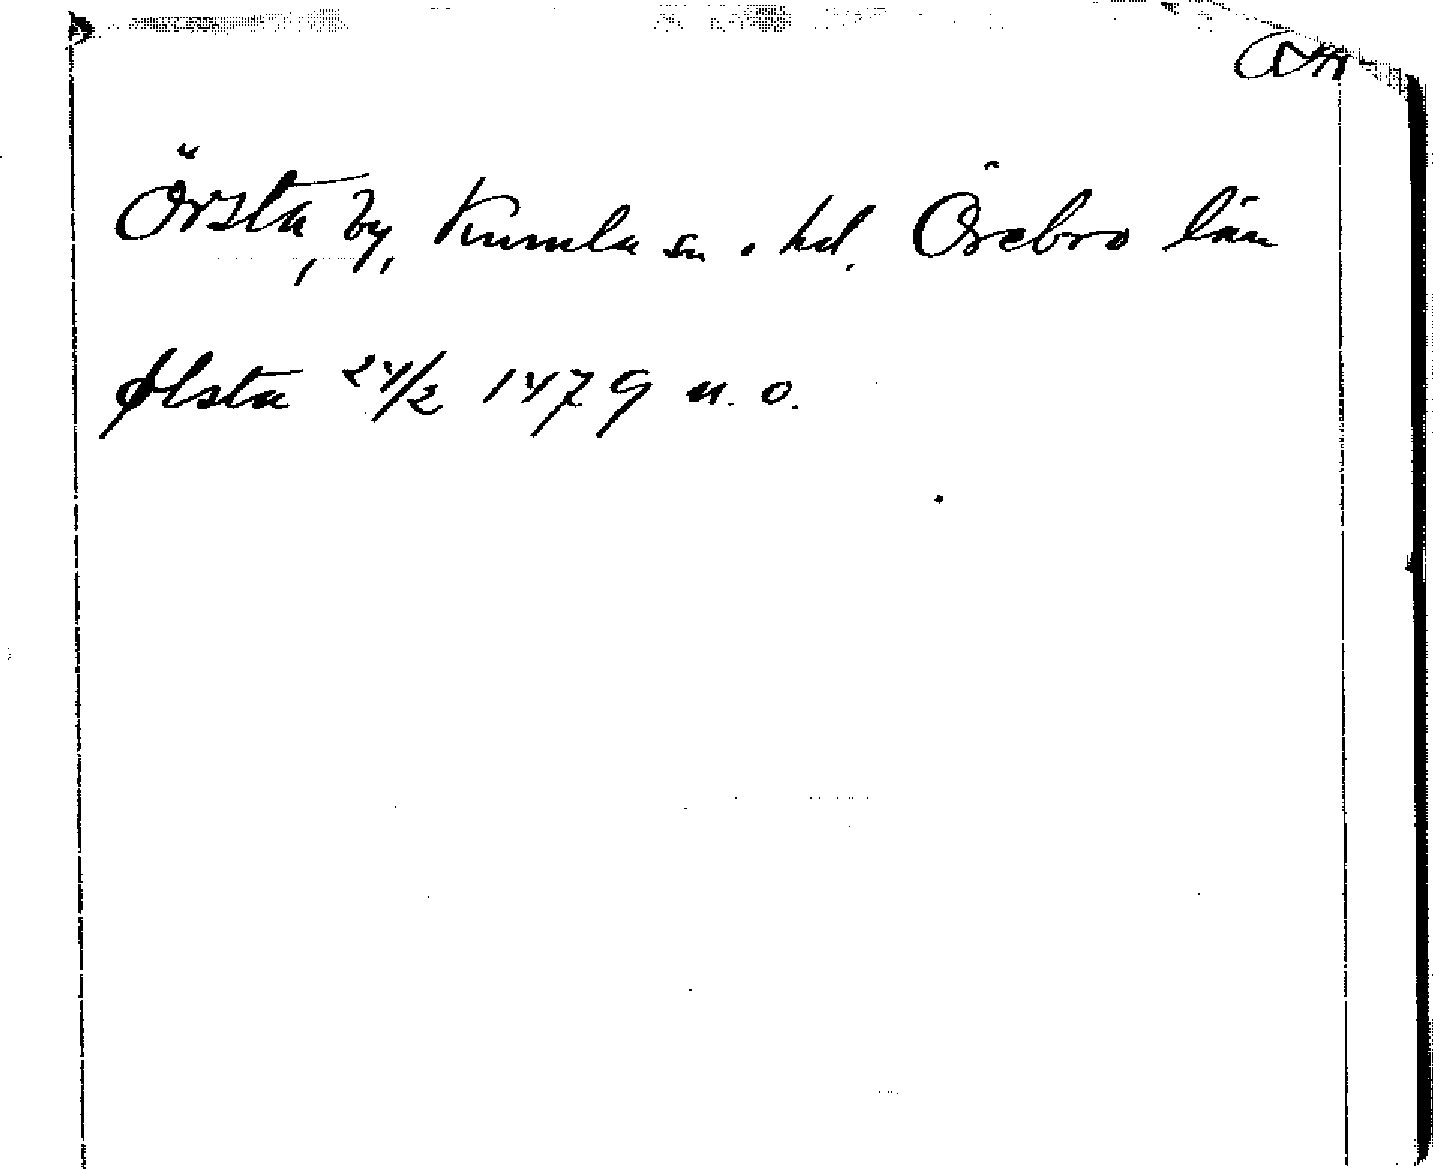 Örsta, by, Kumla sn. hd. Örebro län
Ølsta 24/2 1479 n. o.